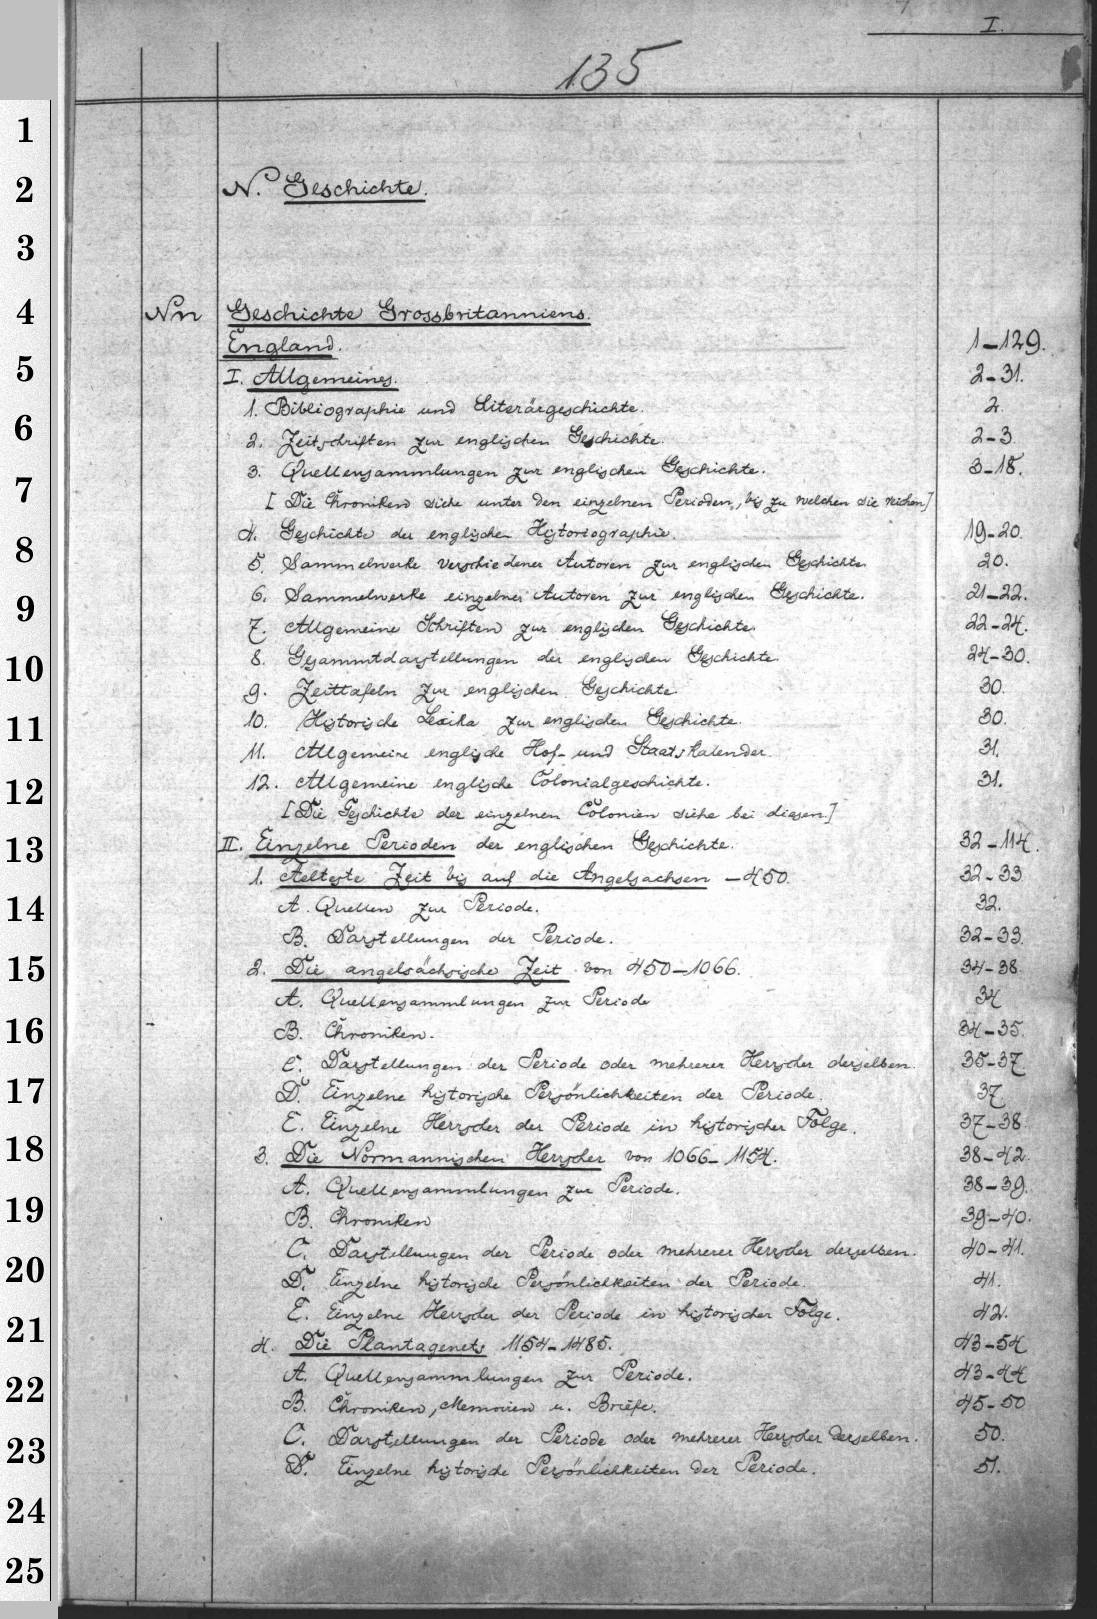 I.
135
1
2 N. Geschichte.
3
4 Nn Geschichte Grossbritanniens.
England. 1-129.
5 I. Allgemeines. 2-31.
1. Bibliographie und Literärgeschichte. 2.
6 2. Zeitschriften zur englischen Geschichte. 2-3
3. Quellensammlungen zur englischen Geschichte. 3-18.
7 [Die Chroniken siehe unter den einzelnen Perioden, bis zu welchen sie reichen]
4. Geschichte der englischen Historiographie. 19-20.
8 5. Sammelwerke verschiedener Autoren zur englischen Geschichte 20.
9 6. Sammelwerke einzelner Autoren zur englischen Geschichte. 21-22.
7. Allgemeine Schriften zur englischen Geschichte 22-24.
10 8. Gesammtdarstellungen der englischen Geschichte 24-30.
9. Zeittafeln zur englischen Geschichte 30.
11 10. Historische Lexika zur englischen Geschichte. 30.
11. Allgemeine englische Hof- und Staatskalender 31.
12 12. Allgemeine englische Colonialgeschichte. 31.
[Die Geschichte der einzelnen Colonien siehe bei diesen.]
13 II. Einzelne Perioden der englischen Geschichte. 32-114.
1. Aelteste Zeit bis auf die Angelsachsen -450. 32-33
14 A. Quellen zur Periode. 32.
B. Darstellungen der Periode. 32-33.
15 2. Die angelsächsische Zeit von 450-1066. 34-38
A. Quellensammlungen zur Periode 34
16 B. Chroniken. 34-35.
C. Darstellungen der Periode oder mehrerer Herrscher derselben. 35-37
17 D. Einzelne historische Persönlichkeiten der Periode. 37
E. Einzelne Herrscher der Periode in historischer Folge. 37-38
18 3. Die Normannischen Herrscher von 1066-1154. 38-42.
A. Quellensammlungen zur Periode. 38-39.
19 B. Chroniken 39-40.
C. Darstellungen der Periode oder mehrerer Herrscher derselben. 40-41.
20 D. Einzelne historische Persönlichkeiten der Periode. 41.
E. Einzelne Herrscher der Periode in historischer Folge. 42.
21 4. Die Plantagenets 1154-1485. 43-54
22 A. Quellensammlungen zur Periode. 43-44
B. Chroniken, Memoiren u. Briefe. 45-50
23 C. Darstellungen der Periode oder mehrerer Herrscher derselben. 50.
D. Einzelne historische Persönlichkeiten der Periode. 51.
24
25